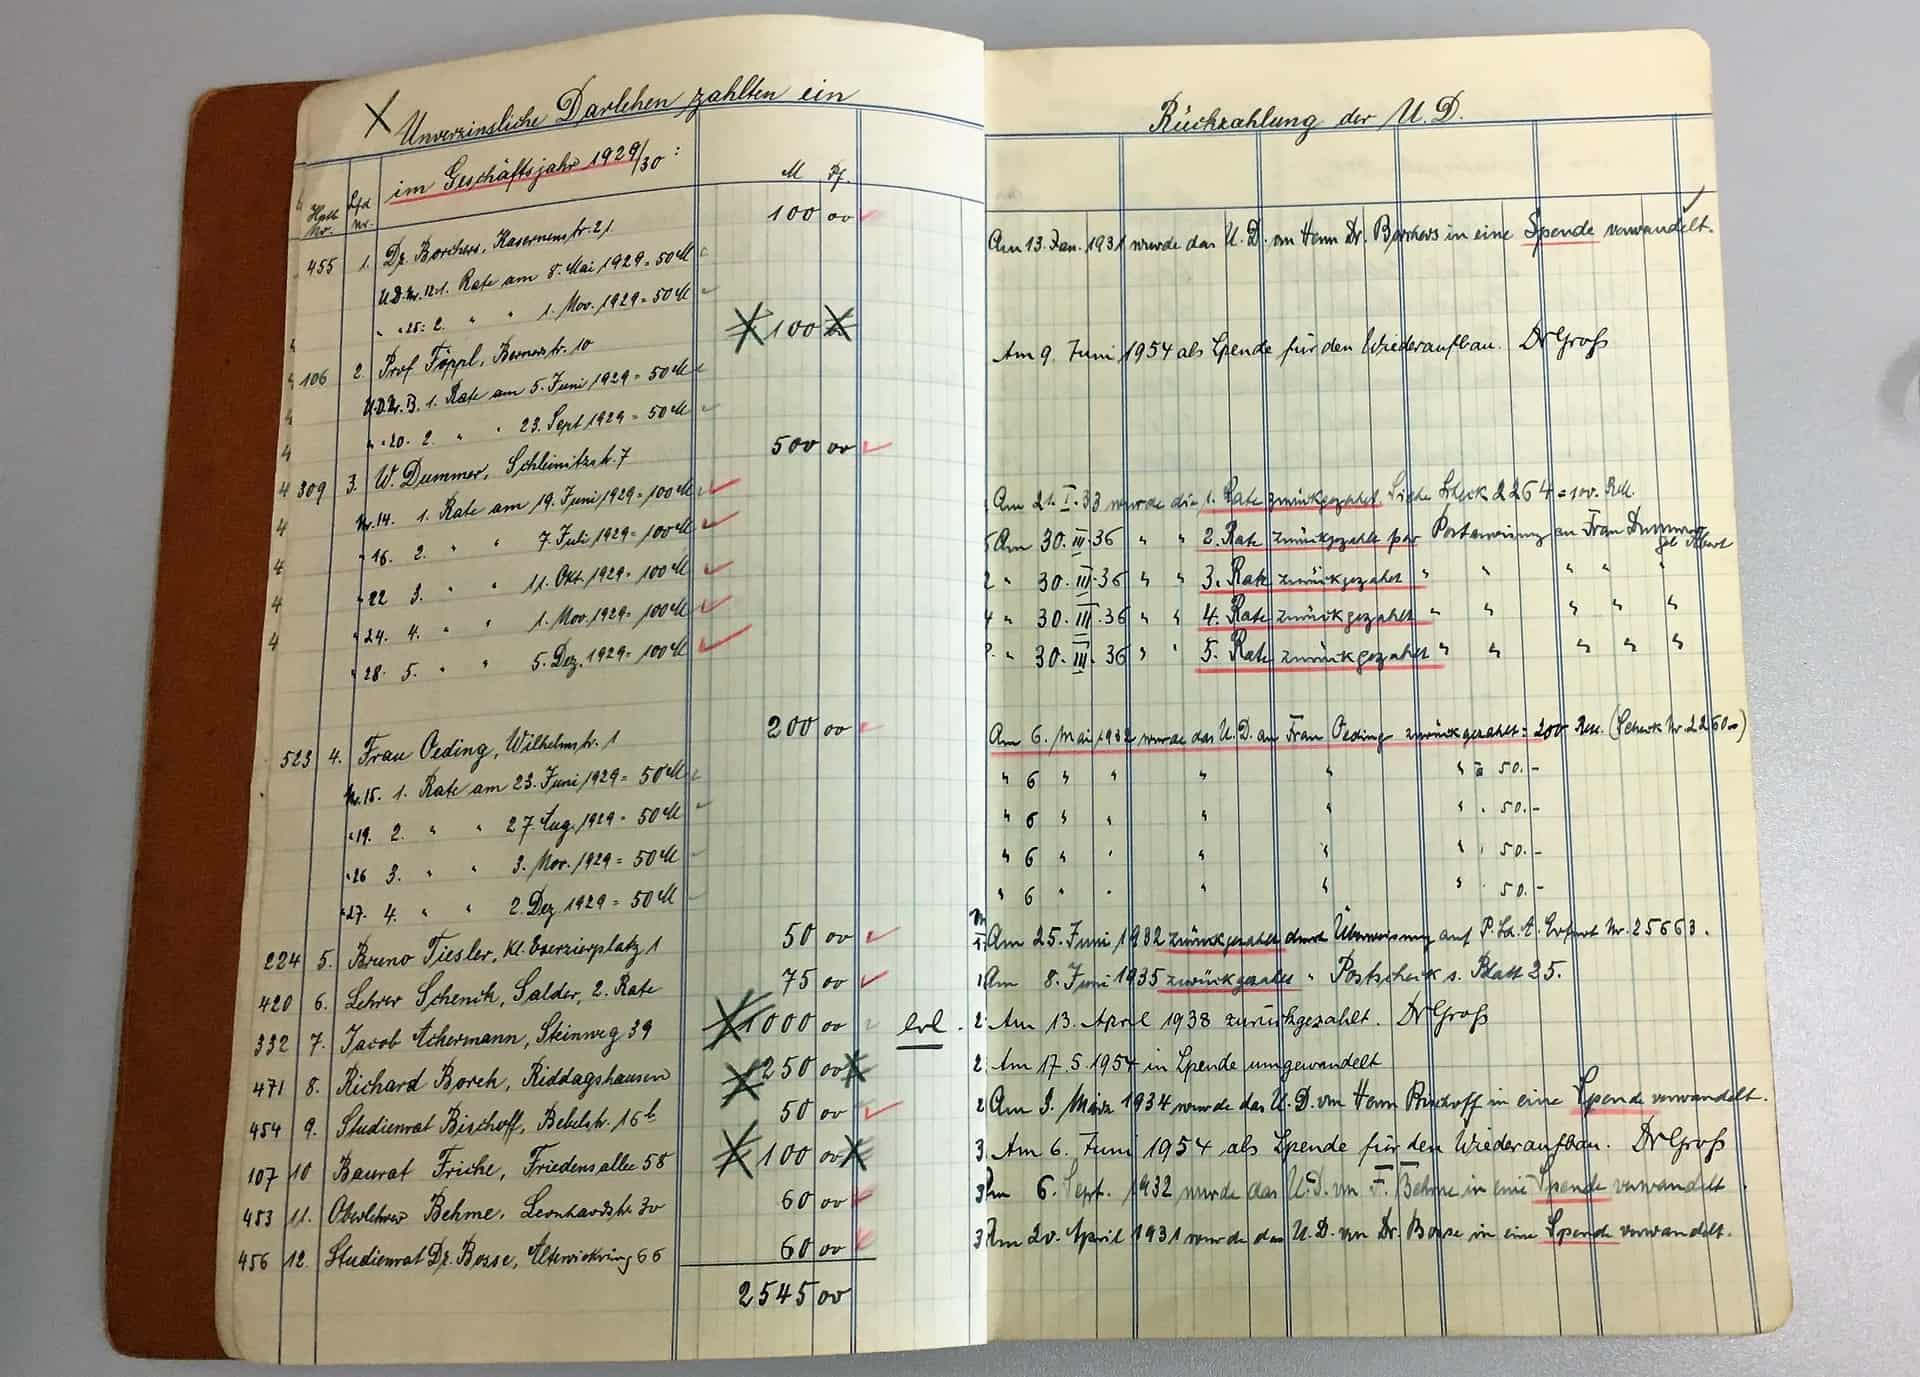 Unverzinsliche Darlehen zahlten ein
im Geschäftsjahr 1929/30:
M Pf.
Lfd. nr.
455 1. Dr. Borchers, Kasernenstr. 21 100 00
U.D. Nr. 12. 1. Rate am 8. Mai 1929 = 50 M
" " 25. 2. " " 1. Nov. 1929 = 50 M
106 2. Prof Föppl, Bernerstr. 10 100
U.D. Nr. 13. 1. Rate am 5. Juni 1929 = 50 M
" " 20. 2. " " 23. Sept 1929 = 50 M
309 3. W. Dummer, Schleinitzstr. 7 500 00
Nr. 14. 1. Rate am 19. Juni 1929 = 100 M
" 16. 2. " " 7. Juli 1929 = 100 M
" 22 3. " " 11. Okt. 1929 = 100 M
" 24. 4. " " 1. Nov. 1929 = 100 M
" 28. 5. " " 5. Dez. 1929 = 100 M
523 4. Frau Oeding, Wilhelmstr. 1 200 00
Nr. 15. 1. Rate am 23. Juni 1929 = 50 M
" 19. 2. " " 27. Aug. 1929 = 50 M
" 26 3. " " 3. Nov. 1929 = 50 M
" 27. 4. " " 2. Dez. 1929 = 50 M
224 5. Bruno Tiesler, Kl. Exerzierplatz 1 50 00
420 6. Lehrer Schenk, Salder, 2. Rate 75 00
332 7. Jacob Achermann, Steinweg 39 1000 00
471 8. Richard Borek, Riddagshausen 250 00
454 9. Studienrat Bischoff, Bebelstr. 16b 50 00
107 10 Baurat Fricke, Friedensallee 58 100 00
453 11. Oberlehrer Behme, Leonhardstr. 30 60 00
456 12. Studienrat Dr. Bosse, Altewiekring 66 60 00
2545 00
Rückzahlung der U.D.
Am 13. Jan. 1931 wurde das U.D. von Herrn Dr. Borchers in eine Spende verwandelt.
Am 9. Juni 1954 als Spende für den Wiederaufbau. Dr Groß
Am 21. I. 33 wurde die 1. Rate zurückgezahlt. Siehe Scheck 2264 = 100. RM.
Am 30. III. 36 " " 2. Rate zurückgezahlt per Postanweisung an Frau Dummer
" 30. III. 36 " " 3. Rate zurückgezahlt " " " " "
" 30. III. 36 " " 4. Rate zurückgezahlt " " " " "
" 30. III. 36 " " 5. Rate zurückgezahlt " " " " "
Am 6. Mai 1932 wurde das U.D. an Frau Oeding zurückgezahlt = 200 RM. (Scheck Nr. 22600)
" 6 " " " " " à 50.-
" 6 " " " " " " 50.-
" 6 " " " " " " 50.-
" 6 " " " " " " 50.-
Am 25. Juni 1932 zurückgezahlt durch Überweisung auf P. Sch. A. Erfurt Nr. 25663.
Am 8. Juni 1935 zurückgezahlt " Postscheck s. Blatt 25.
Am 13. April 1938 zurückgezahlt. Dr Groß
Am 17. 5. 1954 in Spende umgewandelt
Am 3. März 1934 wurde das U.D. von Herrn Bischoff in eine Spende verwandelt.
Am 6. Juni 1954 als Spende für den Wiederaufbau. Dr Groß
Am 6. Sept. 1932 wurde das U.D. von F. Behme in eine Spende verwandelt.
Am 20. April 1931 wurde das U.D. von Dr. Bosse in eine Spende verwandelt.